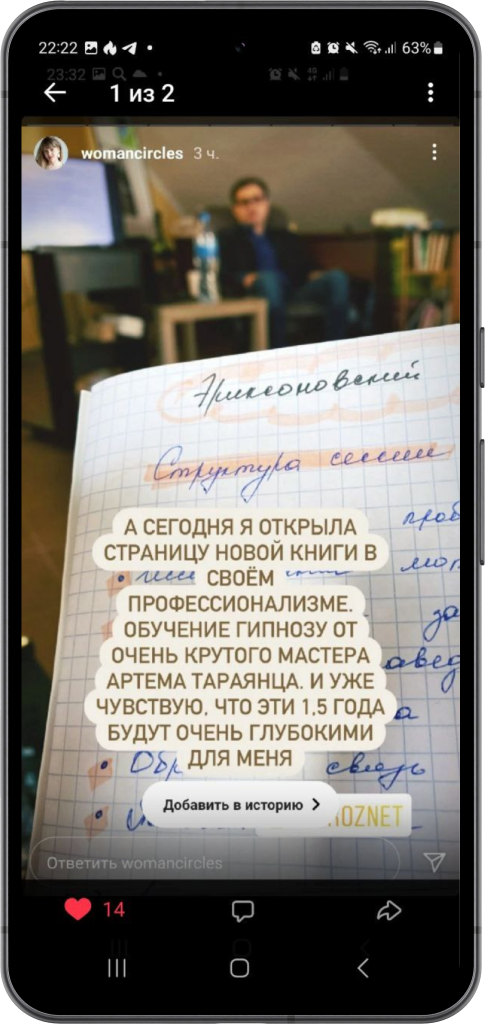 22:22
63%
23:32
1 из 2
womancircles 3 ч.
Эриксоновский
Структура сессии
А СЕГОДНЯ Я ОТКРЫЛА
СТРАНИЦУ НОВОЙ КНИГИ В
СВОЁМ
ПРОФЕССИОНАЛИЗМЕ.
ОБУЧЕНИЕ ГИПНОЗУ ОТ
ОЧЕНЬ КРУТОГО МАСТЕРА
АРТЕМА ТАРАЯНЦА. И УЖЕ
ЧУВСТВУЮ, ЧТО ЭТИ 1,5 ГОДА
БУДУТ ОЧЕНЬ ГЛУБОКИМИ
ДЛЯ МЕНЯ
связь
Добавить в историю
Ответить womancircles
14